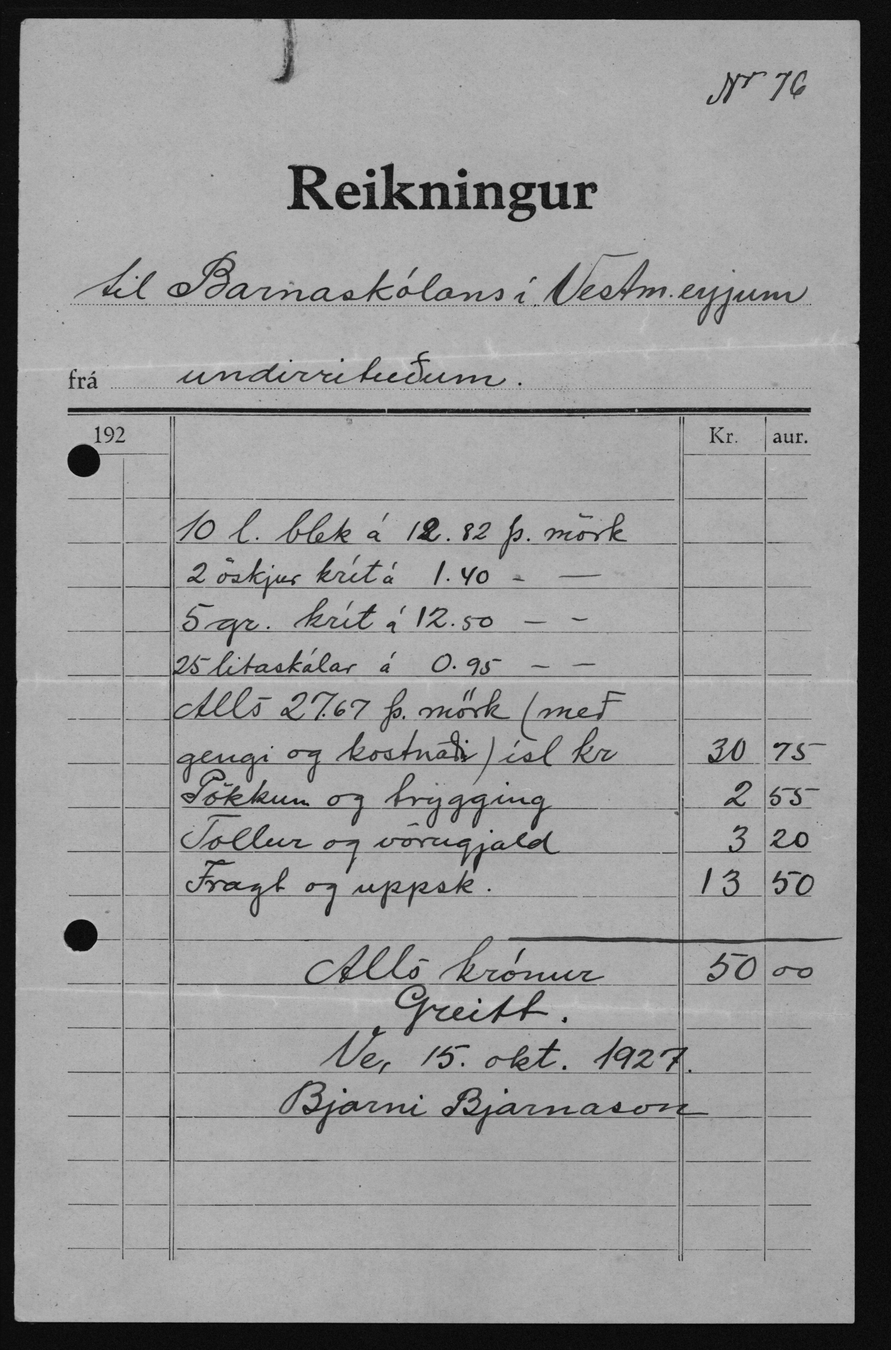 Nr 76
Reikningur
til Barnaskólans í Vestm.eyjum
frá undirrituðum.
192 Kr. aur.
10 l. blek á 12.82 þ. mörk
2 öskjur krít á 1.40 - —
5 gr. krít á 12.50 — -
25 litaskálar á 0.95 — —
Alls 27.67 þ. mörk (með
gengi og kostnaði) ísl kr 30 75
Pökkun og trygging 2 55
Tollur og vörugjald 3 20
Fragt og uppsk. 13 50
Alls krónur 50 00
Greitt.
Ve, 15. okt. 1927.
Bjarni Bjarnason